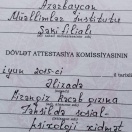 Azərbaycan
Müəllimlər İnstitutu
Şəki filialı
DÖVLƏT ATTESTASİYA KOMİSSİYASININ
iyun 2015-ci
Əlizadə
Rəcəb qızına
Təhsildə sosial-
psixoloji xidmət